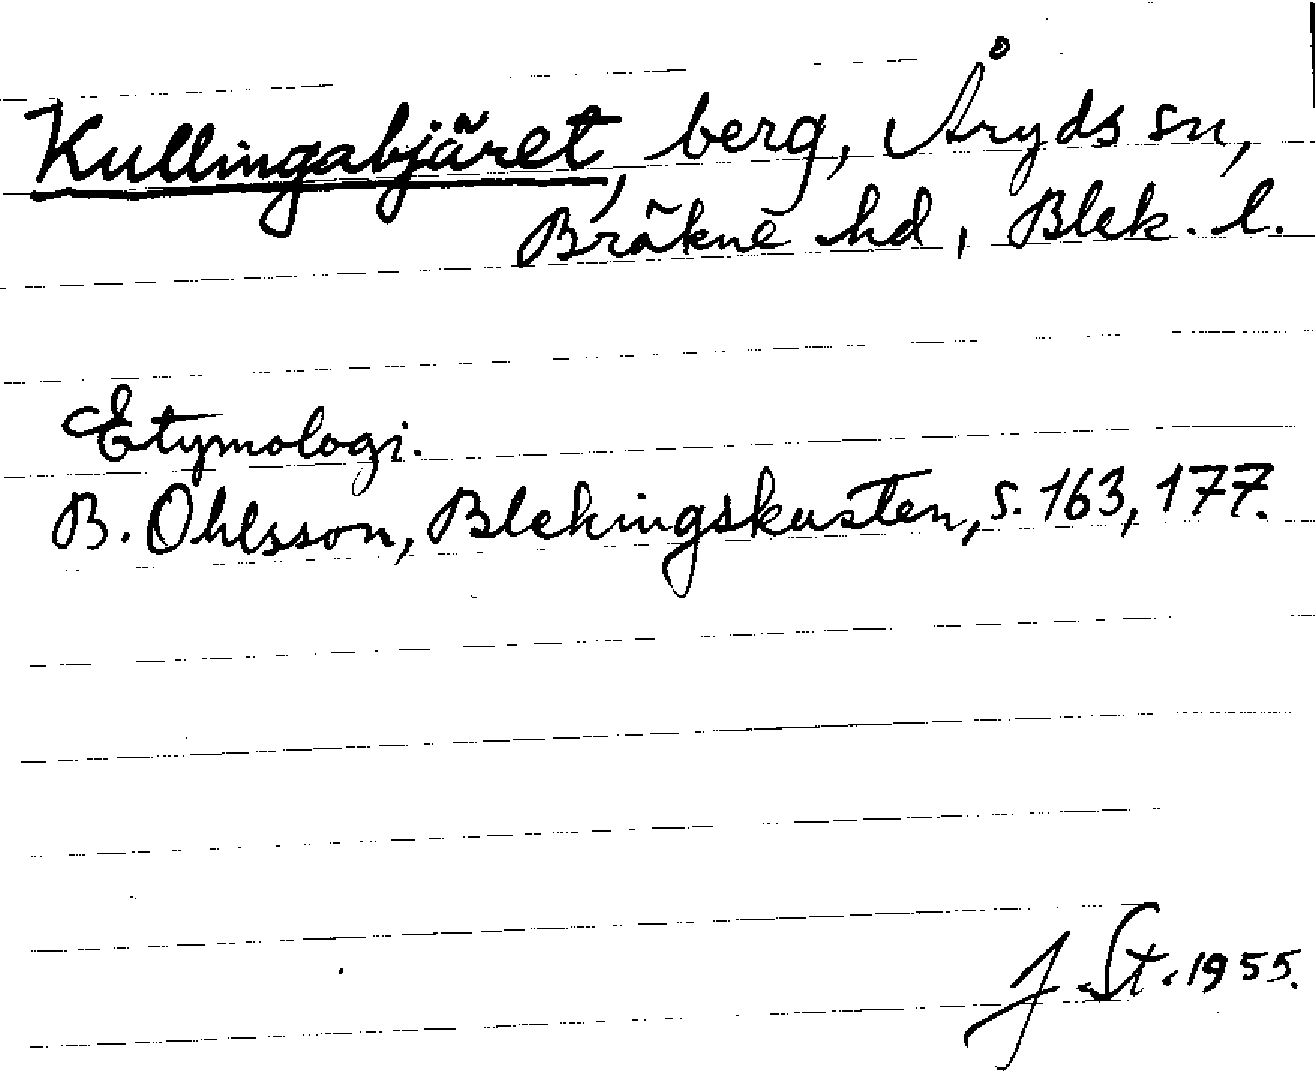 Kullingabjäret, berg, Åryds sn,
Bräkne hd, Blek. l.
Etymologi.
B. Ohlsson, Blekingskusten, s. 163, 177.
J. St. 1955.